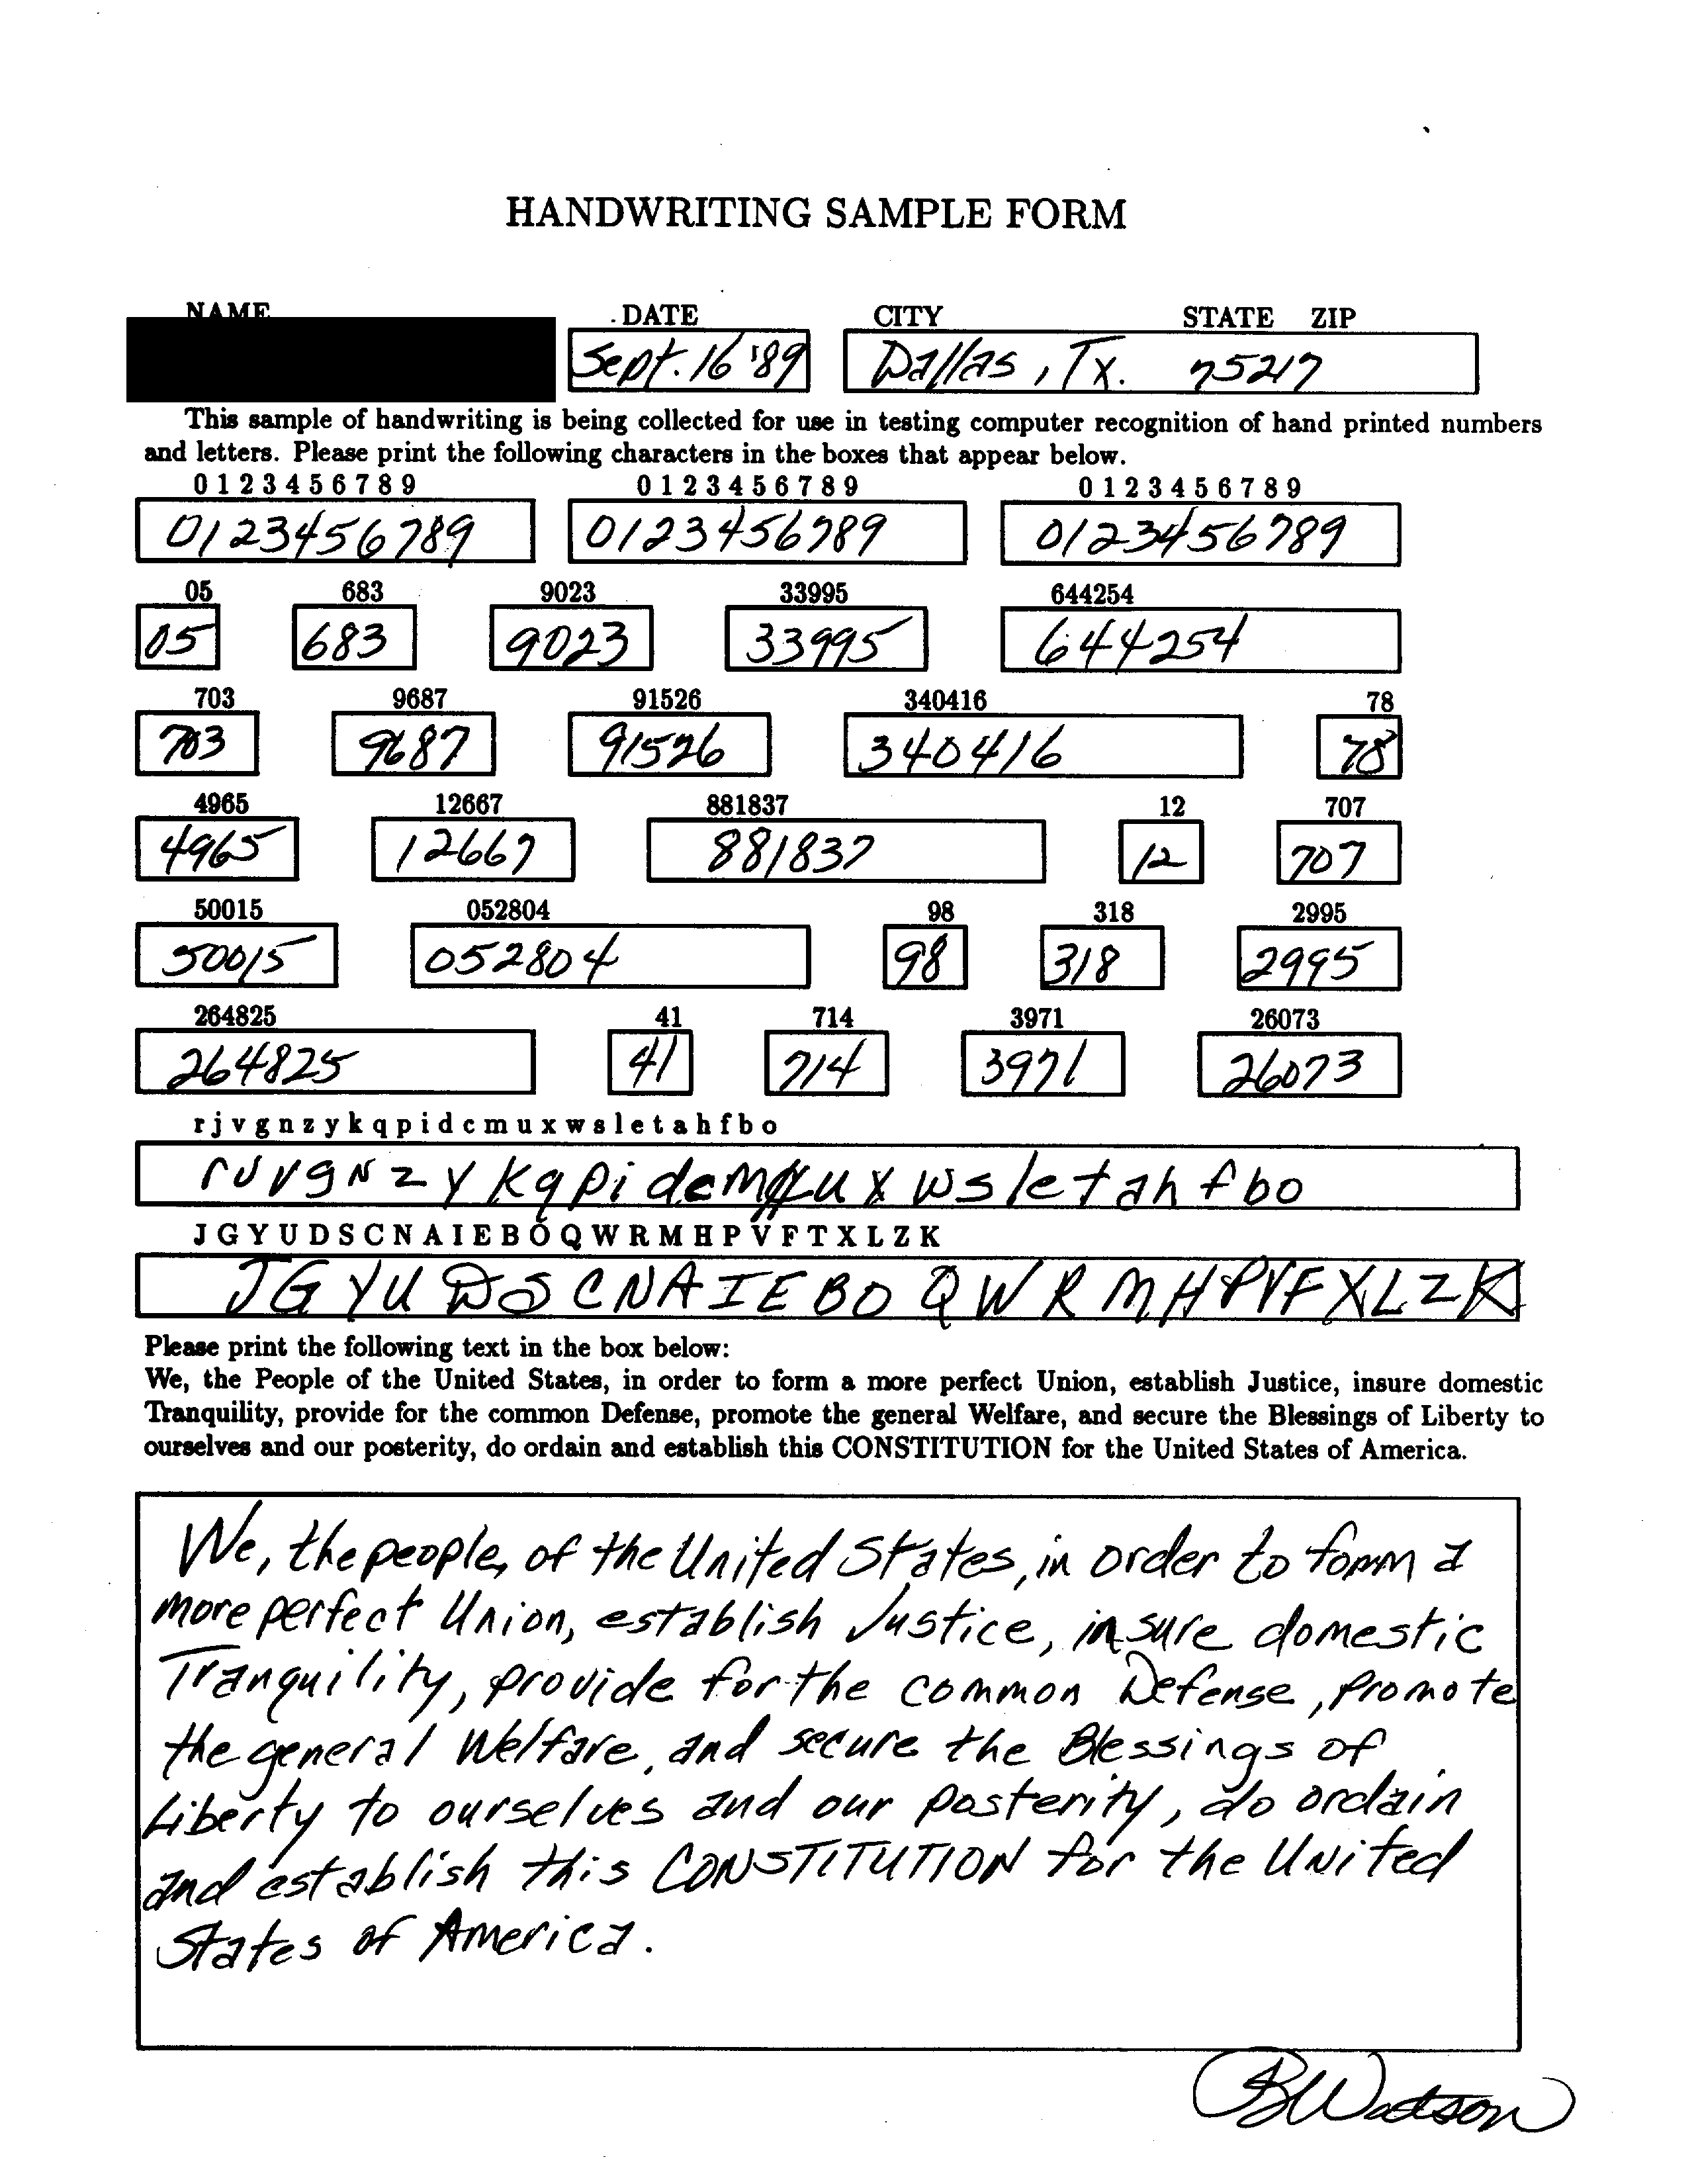 HANDWRITING SAMPLE FORM
NAME DATE CITY STATE ZIP
Sept. 16 '89 Dallas, Tx. 75217
This sample of handwriting is being collected for use in testing computer recognition of hand printed numbers
and letters. Please print the following characters in the boxes that appear below.
0 1 2 3 4 5 6 7 8 9 0 1 2 3 4 5 6 7 8 9 0 1 2 3 4 5 6 7 8 9
0123456789 0123456789 0123456789
05 683 9023 33995 644254
05 683 9023 33995 644254
703 9687 91526 340416 78
703 9687 91526 340416 78
4965 12667 881837 12 707
4965 12667 881837 12 707
50015 052804 98 318 2995
50015 052804 98 318 2995
264825 41 714 3971 26073
264825 41 714 3971 26073
r j v g n z y k q p i d c m u x w s l e t a h f b o
r J v g N z y k q p i d c m u x w s l e t a h f b o
J G Y U D S C N A I E B O Q W R M H P V F T X L Z K
J G Y U D S C N A I E B O Q W R M H P V F X L Z K
Please print the following text in the box below:
We, the People of the United States, in order to form a more perfect Union, establish Justice, insure domestic
Tranquility, provide for the common Defense, promote the general Welfare, and secure the Blessings of Liberty to
ourselves and our posterity, do ordain and establish this CONSTITUTION for the United States of America.
We, the people, of the United States, in order to form a
more perfect Union, establish Justice, insure domestic
Tranquility, provide for the common Defense, promote
the general Welfare, and secure the Blessings of
Liberty to ourselves and our posterity, do ordain
and establish this CONSTITUTION for the United
States of America.
B Watson